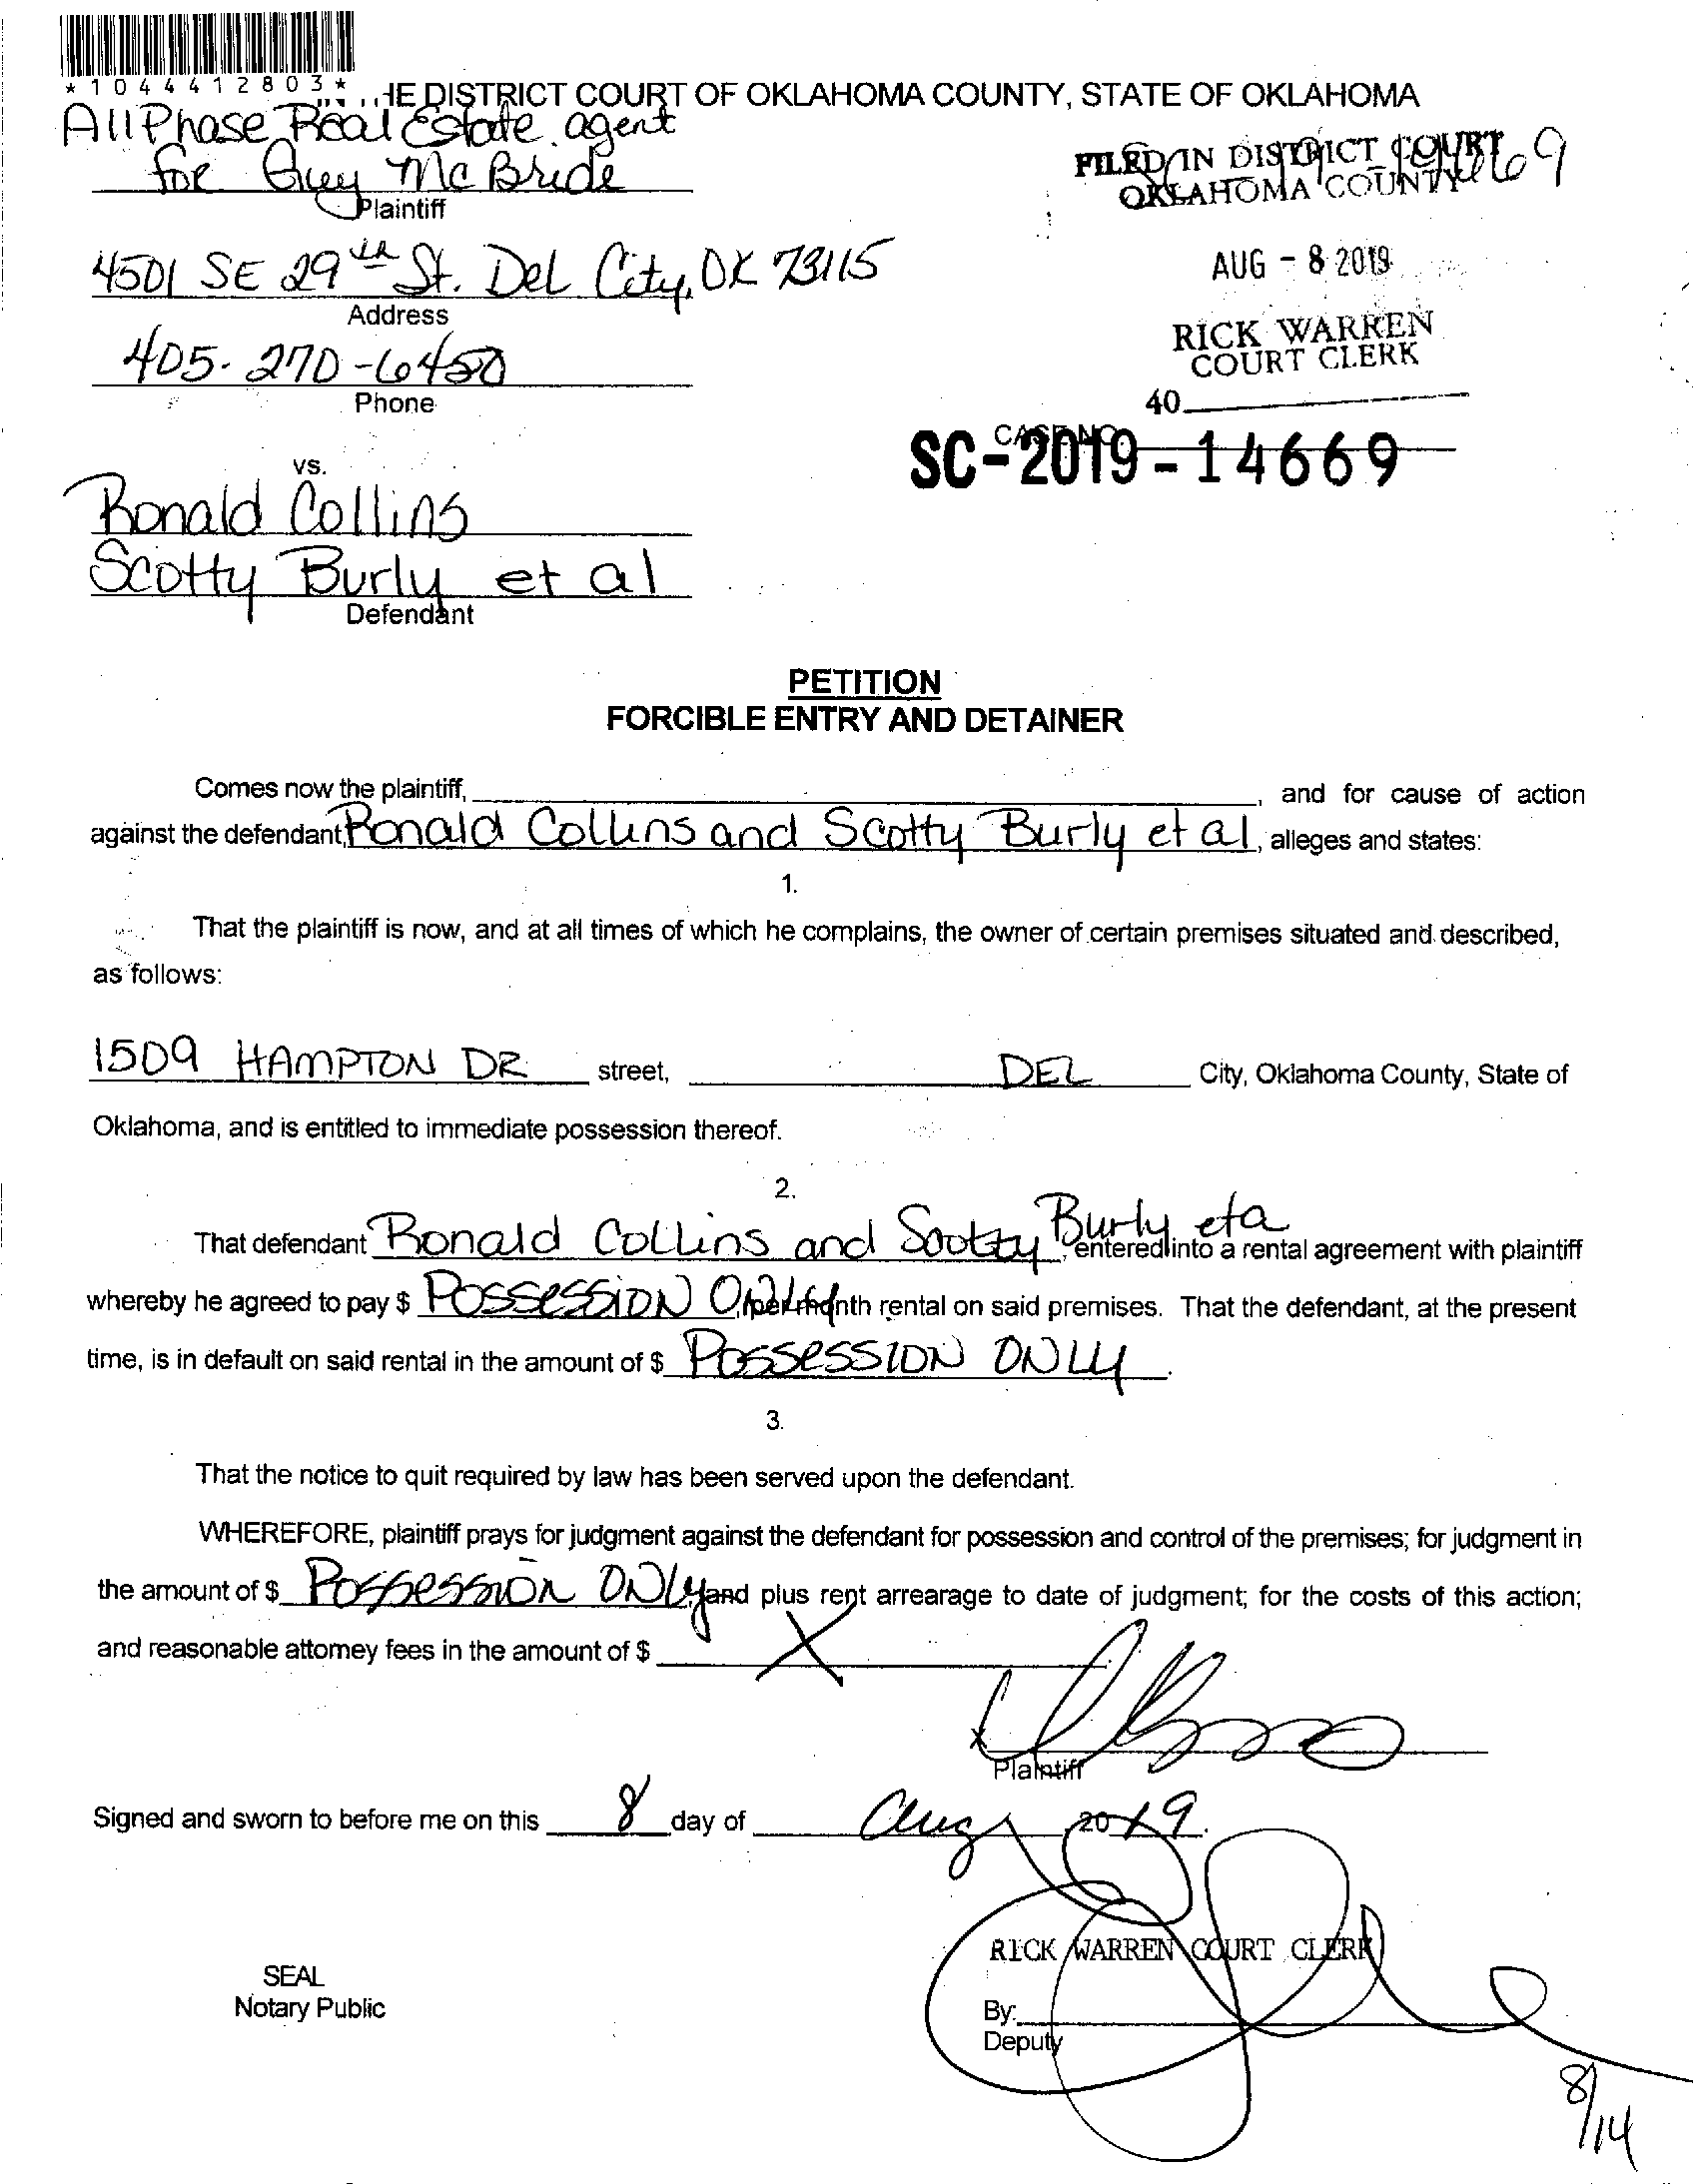 *1044412803*
HE DISTRICT COURT OF OKLAHOMA COUNTY, STATE OF OKLAHOMA
All Phase Real Estate agent
for Guy McBride
Plaintiff
FILED IN DISTRICT COURT
OKLAHOMA COUNTY
4501 SE 29th St. Del City, OK 73115
Address
AUG - 8 2019
405-270-6450
Phone
RICK WARREN
COURT CLERK
40
CASE NO.
SC-2019-14669
vs.
Ronald Collins
Scotty Burly et al
Defendant
PETITION
FORCIBLE ENTRY AND DETAINER
Comes now the plaintiff, , and for cause of action
against the defendant, Ronald Collins and Scotty Burly et al, alleges and states:
1.
That the plaintiff is now, and at all times of which he complains, the owner of certain premises situated and described,
as follows:
1509 HAMPTON DR street, DEL City, Oklahoma County, State of
Oklahoma, and is entitled to immediate possession thereof.
2.
That defendant Ronald Collins and Scotty Burly eta, entered into a rental agreement with plaintiff
whereby he agreed to pay $ POSSESSION ONLY, per month rental on said premises. That the defendant, at the present
time, is in default on said rental in the amount of $ POSSESSION ONLY.
3.
That the notice to quit required by law has been served upon the defendant.
WHEREFORE, plaintiff prays for judgment against the defendant for possession and control of the premises; for judgment in
the amount of $ Possession ONLY, and plus rent arrearage to date of judgment; for the costs of this action;
and reasonable attorney fees in the amount of $ X
x
Plaintiff
Signed and sworn to before me on this 8 day of Aug, 2019.
RICK WARREN COURT CLERK
SEAL
Notary Public
By:
Deputy
8/14